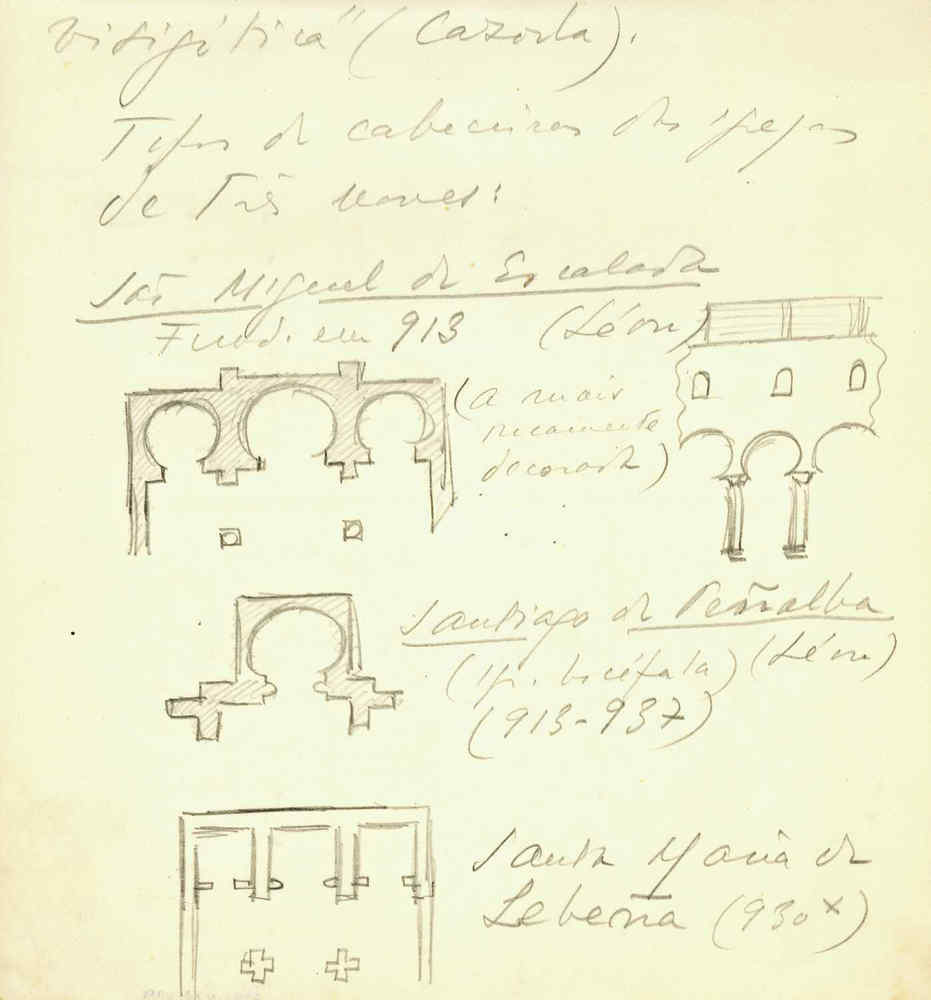 visigótica" (Cazorla).
Tipos de cabeceiras das igrejas
de três naves:
São Miguel de Escalada
Fund. em 913 (Léon)
(a mais
ricamente
decorada)
Santiago de Peñalba
(Léon)
(igr. bicéfala)
(913-937)
Santa Maria de
Lebeña (930 x)